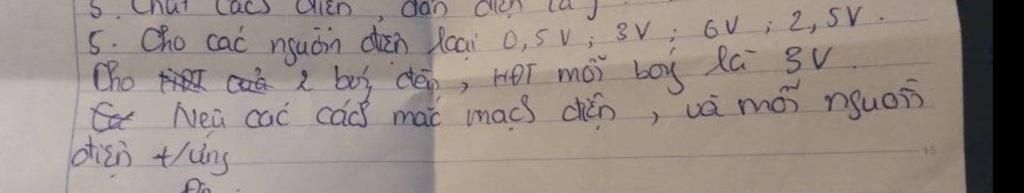 5. Chất cách điện, dẫn điện là
5. Cho các nguồn điện loại 0,5V; 3V; 6V; 2,5V.
Cho 2 bóng đèn, HĐT mỗi bóng là 3V.
Nêu các cách mắc mạch điện, và mỗi nguồn
điện t/ứng